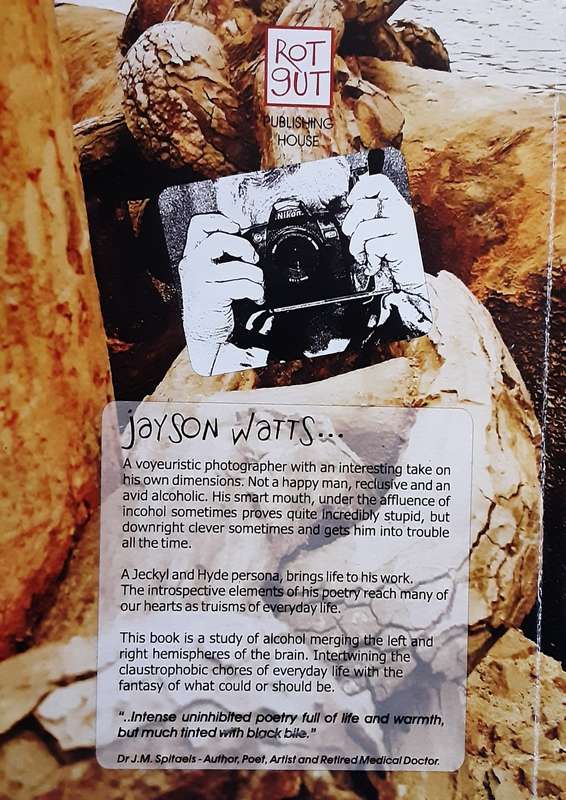 ROT
gUT
PUBLISHING
HOUSE
Nikon
jAYSON WATTS...
A voyeuristic photographer with an interesting take on
his own dimensions. Not a happy man, reclusive and an
avid alcoholic. His smart mouth, under the affluence of
incohol sometimes proves quite incredibly stupid, but
downright clever sometimes and gets him into trouble
all the time.
A Jeckyl and Hyde persona, brings life to his work.
The introspective elements of his poetry reach many of
our hearts as truisms of everyday life.
This book is a study of alcohol merging the left and
right hemispheres of the brain. Intertwining the
claustrophobic chores of everyday life with the
fantasy of what could or should be.
"..Intense uninhibited poetry full of life and warmth,
but much tinted with black bile."
Dr J.M. Spitaels - Author, Poet, Artist and Retired Medical Doctor.